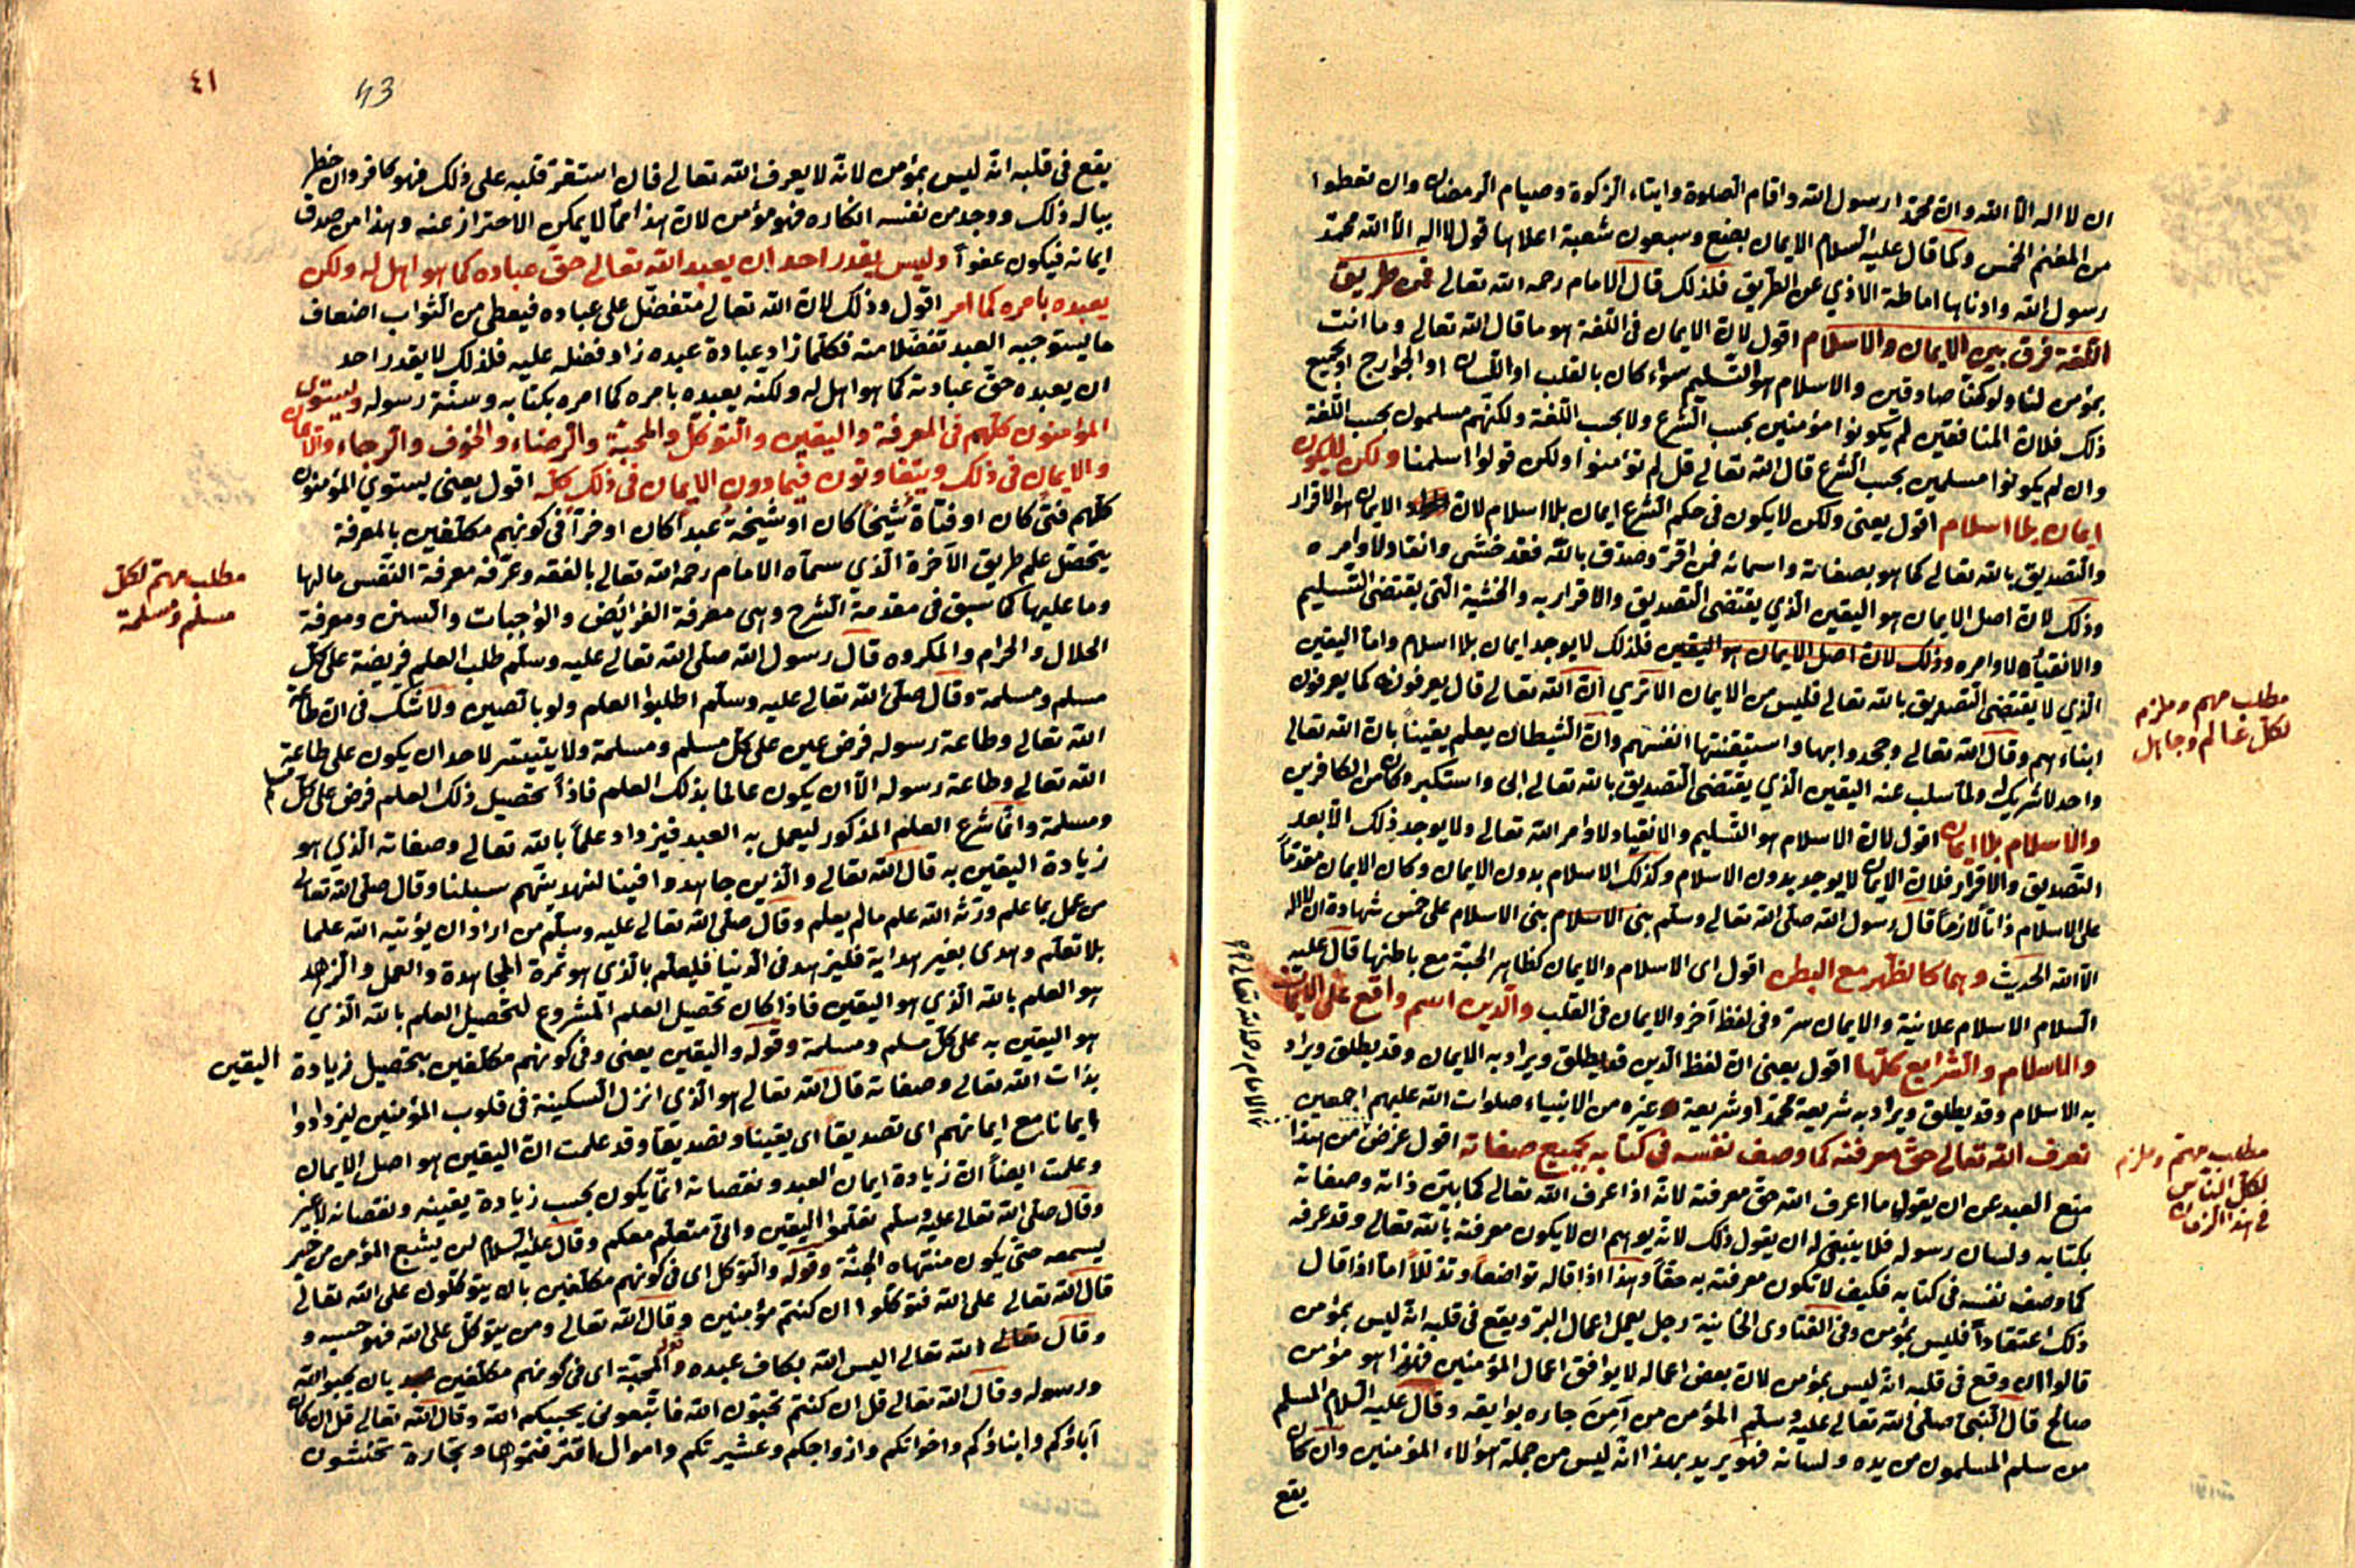 ان لا اله الا الله وان محمدا رسول الله واقام الصلوة وايتاء الزكوة وصيام الرمضان وان تعطوا
من المغنم الخمس وكما قال عليه السلام الايمان بضع وسبعون شعبة اعلاها قول لا اله الا الله محمد
رسول الله وادناها اماطة الاذي عن الطريق فلذلك قال الامام رحمه الله تعالى فمن طريق
اللغة فرق بين الايمان والاسلام اقول لان الايمان في اللغة هو ما قال الله تعالى وما انت
بمؤمن لنا ولو كنا صادقين والاسلام هو التسليم سواء كان بالقلب او اللسان او الجوارح او بجميع
ذلك فلان المنافقين لم يكونوا مؤمنين بحسب الشرع ولا بحسب اللغة ولكنهم مسلمون بحسب اللغة
وان لم يكونوا مسلمين بحسب الشرع قال الله تعالى قل لم تؤمنوا ولكن قولوا اسلمنا ولكن لا يكون
ايمان بلا اسلام اقول يعني ولكن لا يكون في حكم الشرع ايمان بلا اسلام لان الايمان هو الاقرار
والتصديق بالله تعالى كما هو بصفاته واسمائه فمن اقر وصدق بالله فقد خشى وانقاد لاوامره
وذلك لان اصل الايمان هو اليقين الذي يقتضى التصديق والاقرار به والخشية التي يقتضى التسليم
والانقياد لاوامره وذلك لان اصل الايمان هو اليقين فلذلك لا يوجد ايمان بلا اسلام واما اليقين
الذي لا يقتضى التصديق بالله تعالى فليس من الايمان الا تري ان الله تعالى قال يعرفونه كما يعرفون
ابناءهم وقال الله تعالى وجحدوا بها واستيقنتها انفسهم وان الشيطان يعلم يقينا بان الله تعالى
واحد لا شريك له ولما سلب عنه اليقين الذي يقتضى التصديق بالله تعالى ابى واستكبر وكان من الكافرين
والاسلام بلا ايمان اقول لان الاسلام هو التسليم والانقياد لاوامر الله تعالى ولا يوجد ذلك الا بعد
التصديق والاقرار فلان الايمان لا يوجد بدون الاسلام وكذلك الاسلام بدون الايمان وكان الايمان مقدما
على الاسلام ذاتا لا زمانا قال رسول الله صلى الله تعالى وسلم بنى الاسلام بنى الاسلام على خمس شهادة ان لا اله
الا الله الحديث وهما كالظهر مع البطن اقول اى الاسلام والايمان كظاهر الجبة مع باطنها قال عليه
السلام الاسلام علانية والايمان سر وفى لفظ آخر والايمان في القلب والدين اسم واقع على الايمان
والاسلام والشرايع كلها اقول يعنى ان لفظ الدين قد يطلق ويراد به الايمان وقد يطلق ويراد
به الاسلام وقد يطلق ويراد به شريعة محمد او شريعة غيره من الانبياء صلوات الله عليهم اجمعين
نعرف الله تعالى حق معرفته كما وصف نفسه في كتابه بجميع صفاته اقول غرض من هذا
منع العبد عن ان يقول ما اعرف الله حق معرفته لانه اذا عرف الله تعالى كما بين ذاته وصفاته
بكتابه ولسان رسوله فلا ينبغى له ان يقول ذلك لانه يوهم ان لا يكون معرفته بالله تعالى وقد عرفه
كما وصف نفسه في كتابه فكيف لا تكون معرفته به حقا وهذا اذا قاله تواضعا وتذللا اما اذا قال
ذلك اعتقادا فليس بمؤمن وفى الفتاوى الخانية رجل يعمل اعمال البر ويقع في قلبه انه ليس بمؤمن
قالوا ان وقع في قلبه انه ليس بمؤمن لان بعض اعماله لا يوافق اعمال المؤمنين فهذا هو مؤمن
صالح قال النبى صلى الله تعالى عليه وسلم المؤمن من آمن جاره بوايقه وقال عليه السلام المسلم
من سلم المسلمون من يده ولسانه فهو يريد بهذا انه ليس من جملة هؤلاء المؤمنين وان كان
يقع
مطلب مهم وملزم
لكل عالم وجاهل
مطلب مهم وملزم
لكل الناس
في هذا الزمان
٤١
43
يقع في قلبه انه ليس بمؤمن لانه لا يعرف الله تعالى فان استقر قلبه على ذلك فهو كافر وان خطر
بباله ذلك ووجد من نفسه انكاره فهو مؤمن لان هذا مما لا يمكن الاحتراز عنه وهذا من صدق
ايمانه فيكون عفوا وليس يقدر احد ان يعبد الله تعالى حق عباده كما هو اهل له ولكن
يعبده بامره كما امر اقول وذلك لان الله تعالى متفضل على عباده فيعطى من الثواب اضعاف
ما يستوجبه العبد تفضلا منه فكلما زاد عبادة عبده زاد فضله عليه فلذلك لا يقدر احد
ان يعبده حق عبادته كما هو اهل له ولكنه يعبده بامره كما امره بكتابه وسنة رسوله ويستوى
المؤمنون كلهم في المعرفة واليقين والتوكل والمحبة والرضاء والخوف والرجاء والايمان
والايمان في ذلك ويتفاوتون فيما دون الايمان في ذلك كله اقول يعنى يستوي المؤمنون
كلهم فتى كان او فتاة شيخا كان او شيخة عبدا كان او حرا في كونهم مكلفين بالمعرفة
يتحصل علم طريق الآخرة الذي سماه الامام رحمه الله تعالى بالفقه وعرفه معرفة النفس مالها
وما عليها كما سبق في مقدمة الشرح وهى معرفة الفرائض والواجبات والسنن ومعرفة
الحلال والحرام والمكروه قال رسول الله صلى الله تعالى عليه وسلم طلب العلم فريضة على كل
مسلم ومسلمة وقال صلى الله تعالى عليه وسلم اطلبوا العلم ولو بالصين ولا شك في ان طاعة
الله تعالى وطاعة رسوله فرض عين على كل مسلم ومسلمة ولا يتيسر لاحد ان يكون على طاعة
الله تعالى وطاعة رسوله الا ان يكون عالما بذلك العلم فاذا تحصيل ذلك العلم فرض على كل مسلم
ومسلمة وانما شرع العلم المذكور ليعمل به العبد فيزداد علما بالله تعالى وصفاته الذي هو
زيادة اليقين به قال الله تعالى والذين جاهدوا فينا لنهدينهم سبلنا وقال صلى الله تعالى
من عمل بما علم ورثه الله علم مالم يعلم وقال صلى الله تعالى عليه وسلم من اراد ان يؤتيه الله علما
بلا تعلم وهدى بغير هداية فليزهد في الدنيا فليعلم بالذي هو ثمرة المجاهدة والعمل والزهد
هو العلم بالله الذي هو اليقين فاذا كان تحصيل العلم المشروع لتحصيل العلم بالله الذي
هو اليقين به على كل مسلم ومسلمة وقوله واليقين يعنى وفى كونهم مكلفين بتحصيل زيادة اليقين
بذات الله تعالى وصفاته قال الله تعالى هو الذي انزل السكينة في قلوب المؤمنين ليزدادوا
ايمانا مع ايمانهم اى تصديقا اى يقينا وتصديقا وقد علمت ان اليقين هو اصل الايمان
وعلمت ايضا ان زيادة ايمان العبد ونقصانه انما يكون بحسب زيادة يقينه ونقصانه لا غير
وقال صلى الله تعالى عليه وسلم تعلموا اليقين وانى متعلم معكم وقال عليه السلام لن يشبع المؤمن من خير
يسمعه حتى يكون منتهاه الجنة وقوله والتوكل اى في كونهم مكلفين بان يتوكلون على الله تعالى
قال الله تعالى على الله فتوكلوا ان كنتم مؤمنين وقال الله تعالى ومن يتوكل على الله فهو حسبه و
وقال الله تعالى اليس الله بكاف عبده وقوله المحبة اى في كونهم مكلفين بان يحبوا الله
ورسوله وقال الله تعالى قل ان كنتم تحبون الله فاتبعونى يحببكم الله وقال الله تعالى قل ان كان
آباؤكم وابناؤكم واخوانكم وازواجكم وعشيرتكم واموال اقترفتموها وتجارة تخشون
مطلب مهم لكل
مسلم ومسلمة